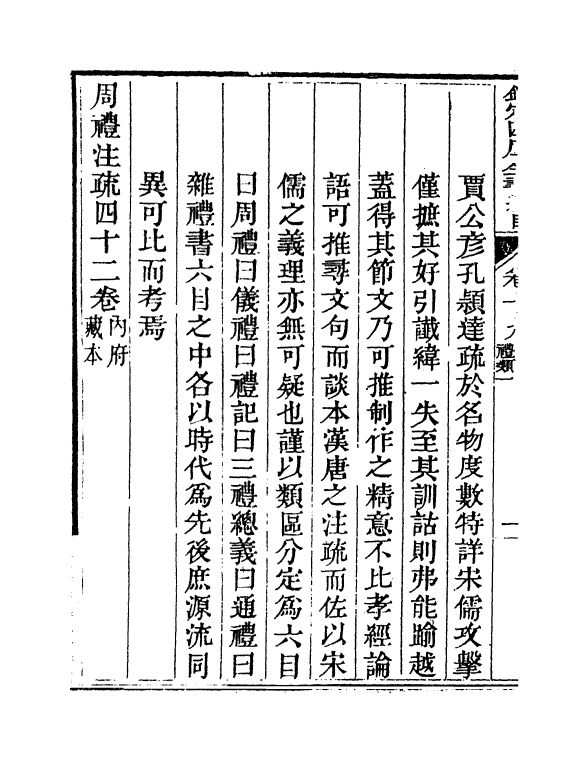 賈公彦孔頴達疏於名物度數特詳宋儒攻擊
僅摭其好引讖緯一失至其訓詁則弗能踰越
蓋得其節文乃可推制作之精意不比孝經論
語可推尋文句而談本漢唐之注疏而佐以宋
儒之義理亦無可疑也謹以類區分定為六目
曰周禮曰儀禮曰禮記曰三禮總義曰通禮曰
雜禮書六目之中各以時代為先後庶源流同
異可比而考焉
周禮注疏四十二卷內府藏本
禮類一